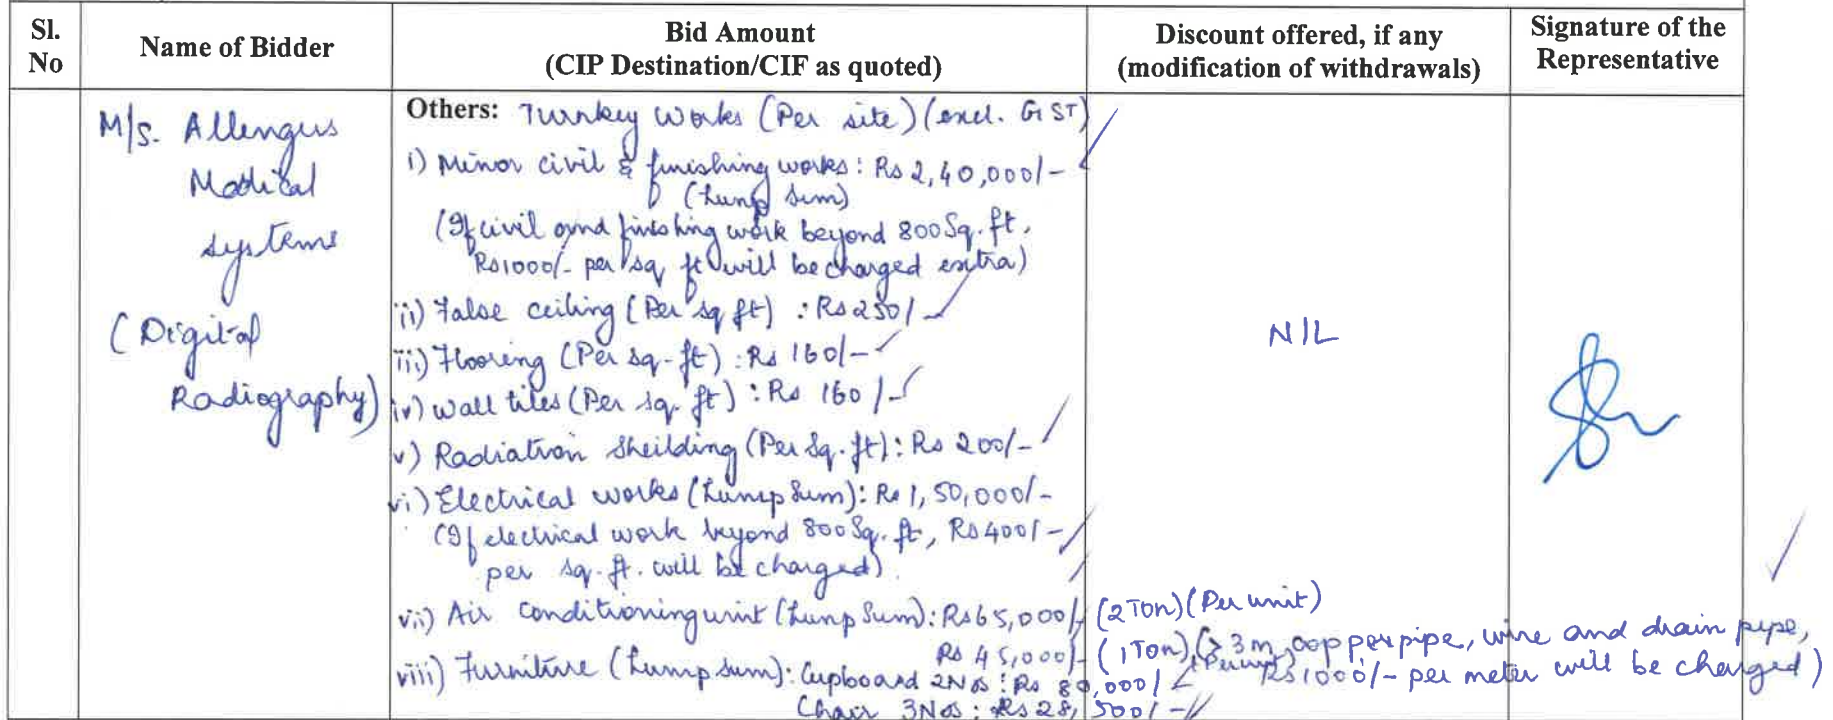 Sl. No
Name of Bidder
Bid Amount
(CIP Destination/CIF as quoted)
Discount offered, if any
(modification of withdrawals)
Signature of the
Representative
M/s. Allengers
Medical
systems
(Digital
Radiography)
Others: Turnkey Works (Per site) (excl. GST)
i) Minor civil & finishing works: Rs 2,40,000/-
(Lump sum)
(If civil and finishing work beyond 800 Sq. ft,
Rs1000/- per sq ft will be charged extra)
ii) False ceiling (Per sq ft) : Rs 250/-
iii) Flooring (Per sq-ft) : Rs 160/-
iv) Wall tiles (Per sq. ft) : Rs 160/-
v) Radiation Sheilding (Per Sq. ft) : Rs 200/-
vi) Electrical works (Lump Sum): Rs 1,50,000/-
(If electrical work beyond 800 Sq. ft, Rs 400/-
per sq. ft. will be charged)
vii) Air conditioning unit (Lump Sum): Rs 65,000/- (2 Ton) (Per unit)
Rs 45,000/- (1 Ton) (Per unit) (> 3 m, copper pipe, wire and drain pipe,
Rs 1000/- per meter will be charged)
viii) Furniture (Lump sum): Cupboard 2Nos : Rs 80,000/-
Chair 3Nos : Rs 28,500/-
NIL